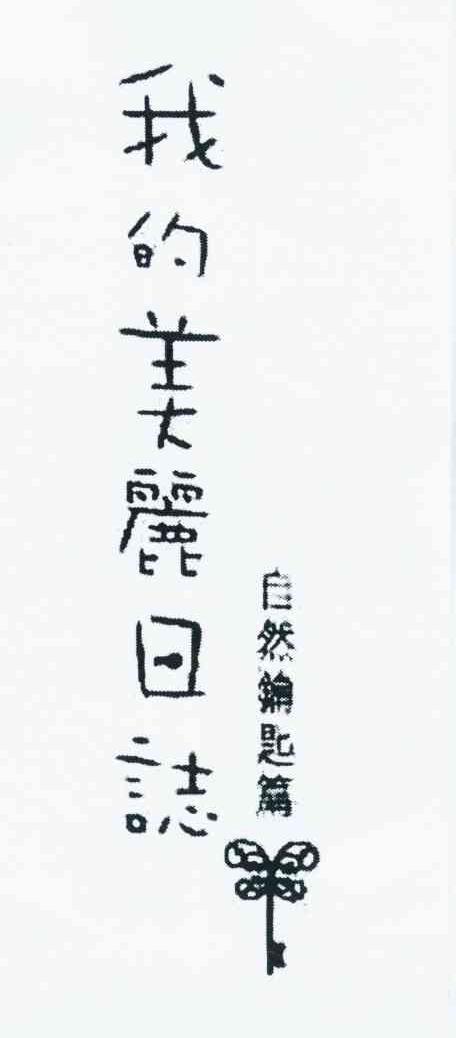 我的美麗日誌
自然鑰匙篇